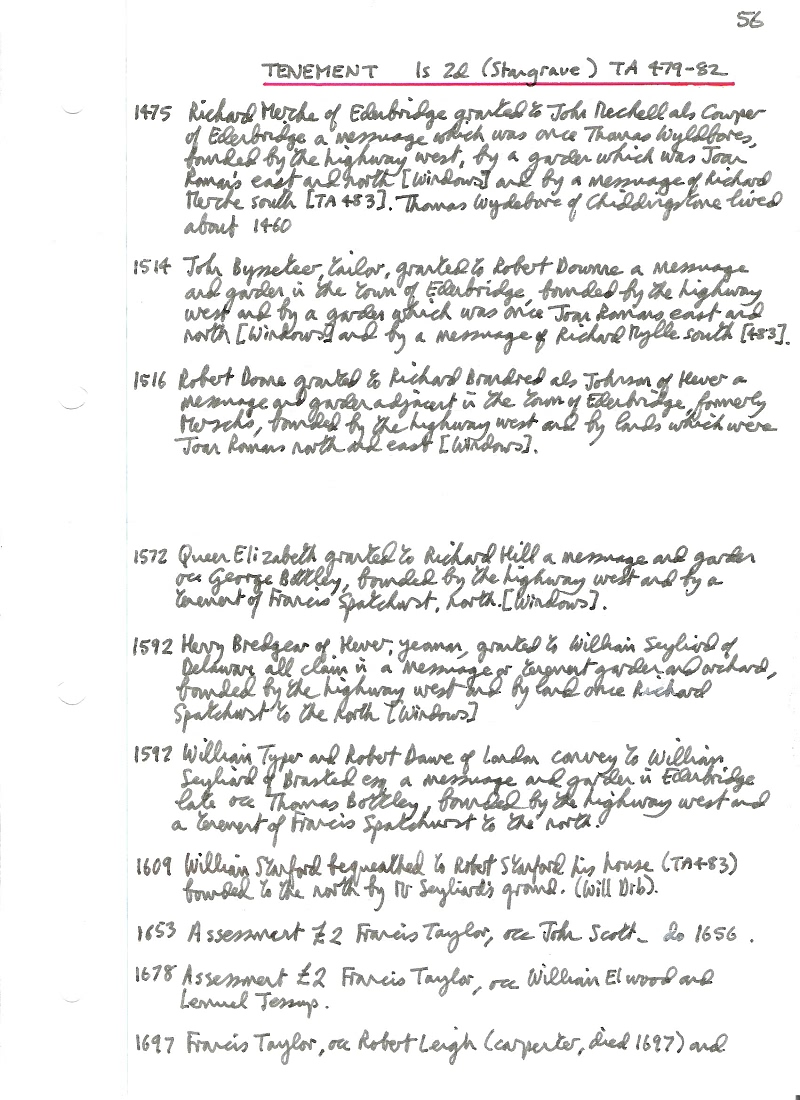 56
TENEMENT 1s 2d (Stangrave) TA 479-82
1475 Richard Merche of Edenbridge granted to John Mechell als Cowper
of Edenbridge a messuage which was once Thomas Wyldbores,
bounded by the highway west, by a garden which was Joan
Romans east and north [Windows] and by a messuage of Richard
Merche south [TA 483]. Thomas Wydebore of Chiddingstone lived
about 1460
1514 John Bysseteer, tailor, granted to Robert Downe a messuage
and garden in the town of Edenbridge, bounded by the highway
west and by a garden which was once Joan Romans east and
north [Windows] and by a messuage of Richard Mylle south [483].
1516 Robert Doane granted to Richard Brandred als Johnson of Hever a
messuage and garden adjacent in the town of Edenbridge, formerly
bounded by the highway west and by lands which were
Joan Romans north and east [Windows].
1572 Queen Elizabeth granted to Richard Hill a messuage and garden
occ George Bottley, bounded by the highway west and by a
tenement of Francis Spatchurst, north. [Windows].
1592 Henry Bredgear of Hever, yeoman, granted to William Seyliard of
Delaware all claim in a messuage or tenement garden and orchard,
bounded by the highway west and by land once Richard
Spatchurst to the north [Windows]
1592 William Typer and Robert Dawe of London convey to William
Seyliard of Brasted esq a messuage and garden in Edenbridge
late occ Thomas Bottley, bounded by the highway west and
a tenement of Francis Spatchurst to the north.
1609 William Stanford bequeathed to Robert Stanford his house (TA483)
bounded to the north by Mr Seyliard's ground. (Will Drb).
1653 Assessment £2 Francis Taylor, occ John Scott - do 1656.
1678 Assessment £2 Francis Taylor, occ William Elwood and
Lemuel Jessup.
1697 Francis Taylor, occ Robert Leigh (carpenter, died 1697) and